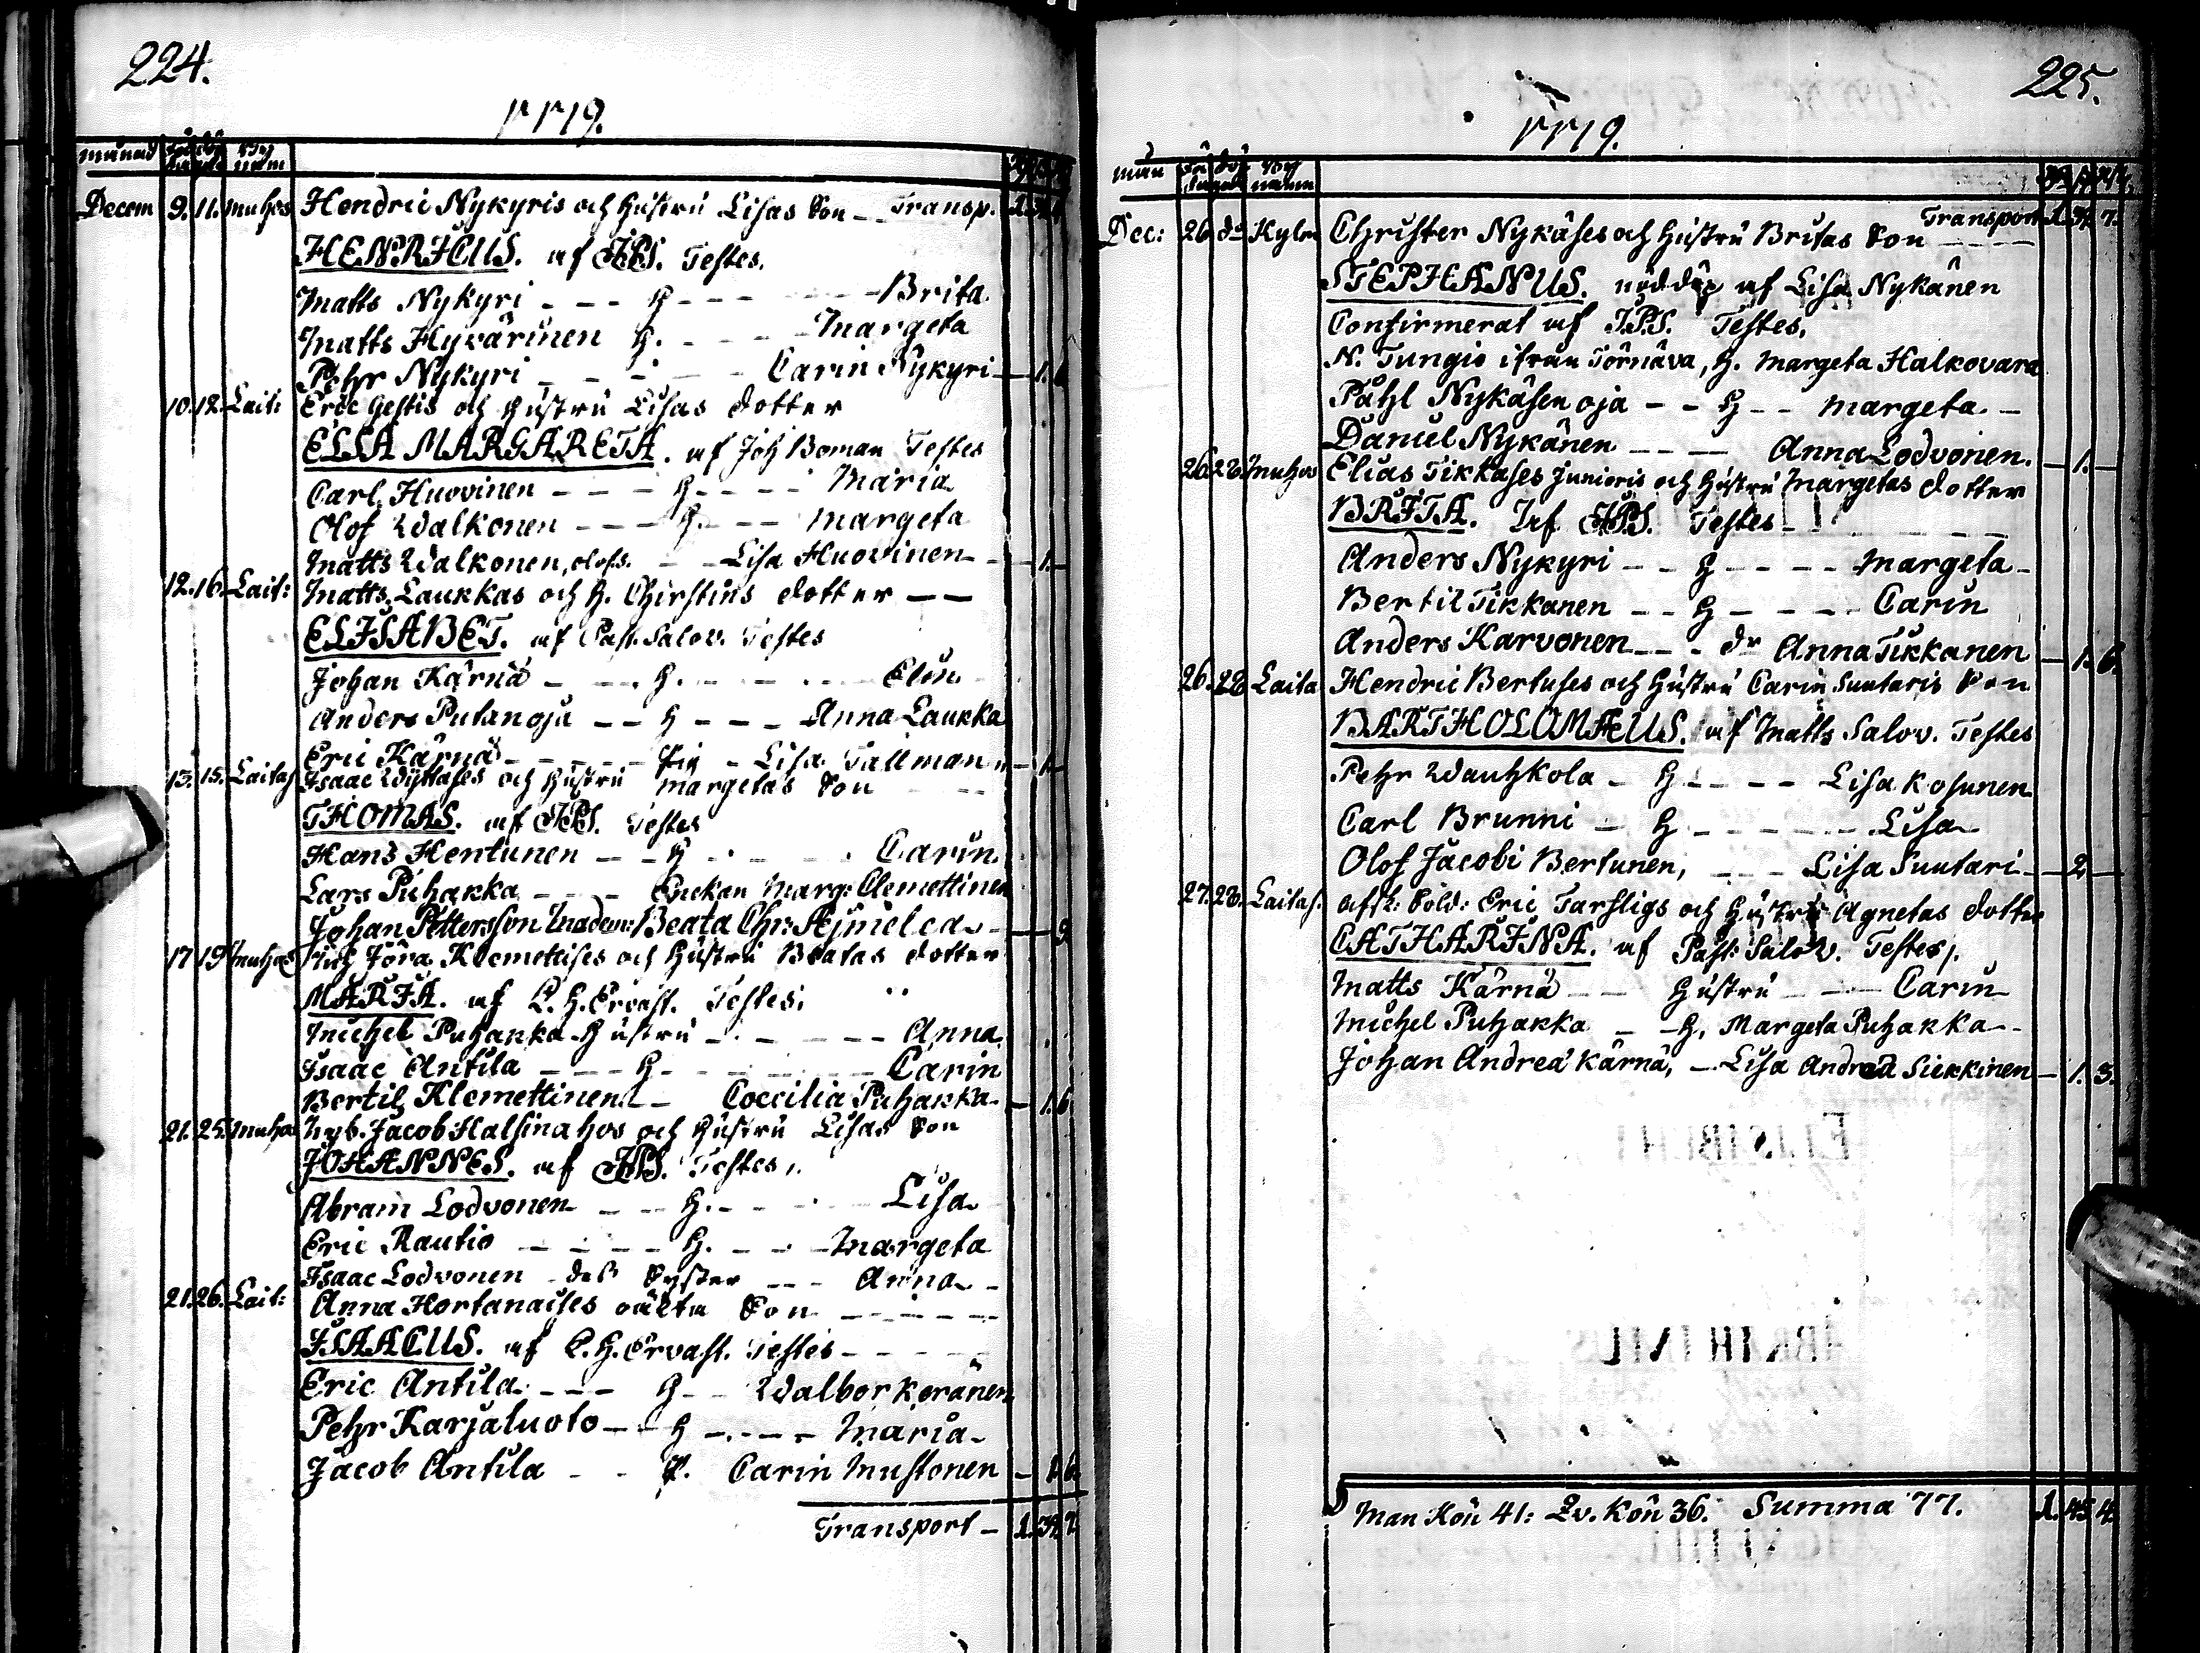 224.
1719.
månad by namn
Decem 9. 11. muhos Hendric Nykyris och hustru Lisas Son -- Transp. 1.
HENRICUS. af JPS. Testes.
Matts Nykyri - - - H - - - Brita
Matts Hyvärinen H. - - - Margeta
Pehr Nykyri - - - Carin Nykyri - 1. 6
10. 12. Lait: Eric Hestis och hustru Lisas dotter
ELSA MARGARETA. af Joh Boman Testes
Carl Huovinen - - - H - - - Maria
Olof Walkonen - - - H. - - Margeta
Matts Walkonen, olofs. - - Lisa Huovinen - - 1. -
12. 16. Lait: Matts Laukkas och H. Chirstins dotter - -
ELISABET. af Past. Salov. Testes
Johan Kärnä - - - H. - - - Elin
Anders Putanoja - - H - - - Anna Laukka
Eric Kärnä - - - - Lisa Tallman - 1. -
13. 15. Laitas Isaac och hustru Margetas Son
THOMAS. af JPS. Testes
Hans Hentunen - - H - - - Carin
Lars Puhakka - - - Enckan Marg: Clemettinen
Johan Pettersson Madem: Beata Chr: Æjmelea - - 9.
17 19 muhos Joran Klemettises och hustru Beatas dotter
MARIA. af C. H. Ervast. Testes:
Michel Puhakka hustru - - - Anna
Isaac Antila - - - H - - - Carin
Bertil Klemettinen - Coecilia Puhakka - 1. 6.
21. 25. muho Nyb. Jacob Halsinahos och hustru Lisas Son
JOHANNES. af JPS. Testes,
Abram Lodvonen - - H. - - Lisa
Eric Rautio - - - - H. - - Margeta
Isaac Lodvonen des Syster - - - Anna -
21. 26. Lait: Anna Hortanaises oäkta Son - - -
ISAACUS. af C. H. Ervast. Testes - - -
Eric Antila - - - H - - Walbor Keränen
Pehr Karjaluoto - - H - - - Maria -
Jacob Antila - - Carin Mustonen - 1. 6.
Transport - 1. 39. 7.
225.
1719.
mån by namn
Transport 1. 39. 7.
Dec: 26 do Kylm Christer Nykäses och hustru Britas Son - - -
STEPHANUS. nöddöp af Lisa Nykänen
Confirmerat af J.P.S. Testes,
N. Tungio ifrån Törnäva, H. Margeta Halkovara
Påhl Nykäsenoja - - H - - Margeta -
Daniel Nykänen - - - Anna Lodvonen. - 1. -
26. 28. muhos Elias Tikkases junioris och hustru Margetas dotter
BRITA. af JPS. Testes
Anders Nykyri - - H - - - - Margeta -
Bertil Tikkanen - - H - - - - Carin
Anders Karvonen - - - dr Anna Tikkanen - 1. 6.
26. 28 Laita Hendric Bertuses och hustru Carin Suutaris Son
BARTHOLOMÆUS. af Matts Salov. Testes
Pehr Wauhkola - H - - - - Lisa Kosunen
Carl Brunni - H - - - - - Lisa
Olof Jacobi Bertunen, - - - Lisa Suutari - 2. -
27. 28. Laitas. afsk: Sold: Eric Tarsligs och hustru Agnetas dotter
CATHARINA. af Past: Salov. Testes.
Matts Kärnä - - hustru - - Carin
Michel Puhakka - - H, Margeta Puhakka -
Johan Andreæ Kärnä, - Lisa Andreæ Siekkinen - 1. 3.
Man Kön 41: Qv. Kön 36. Summa 77. 1. 45. 4.